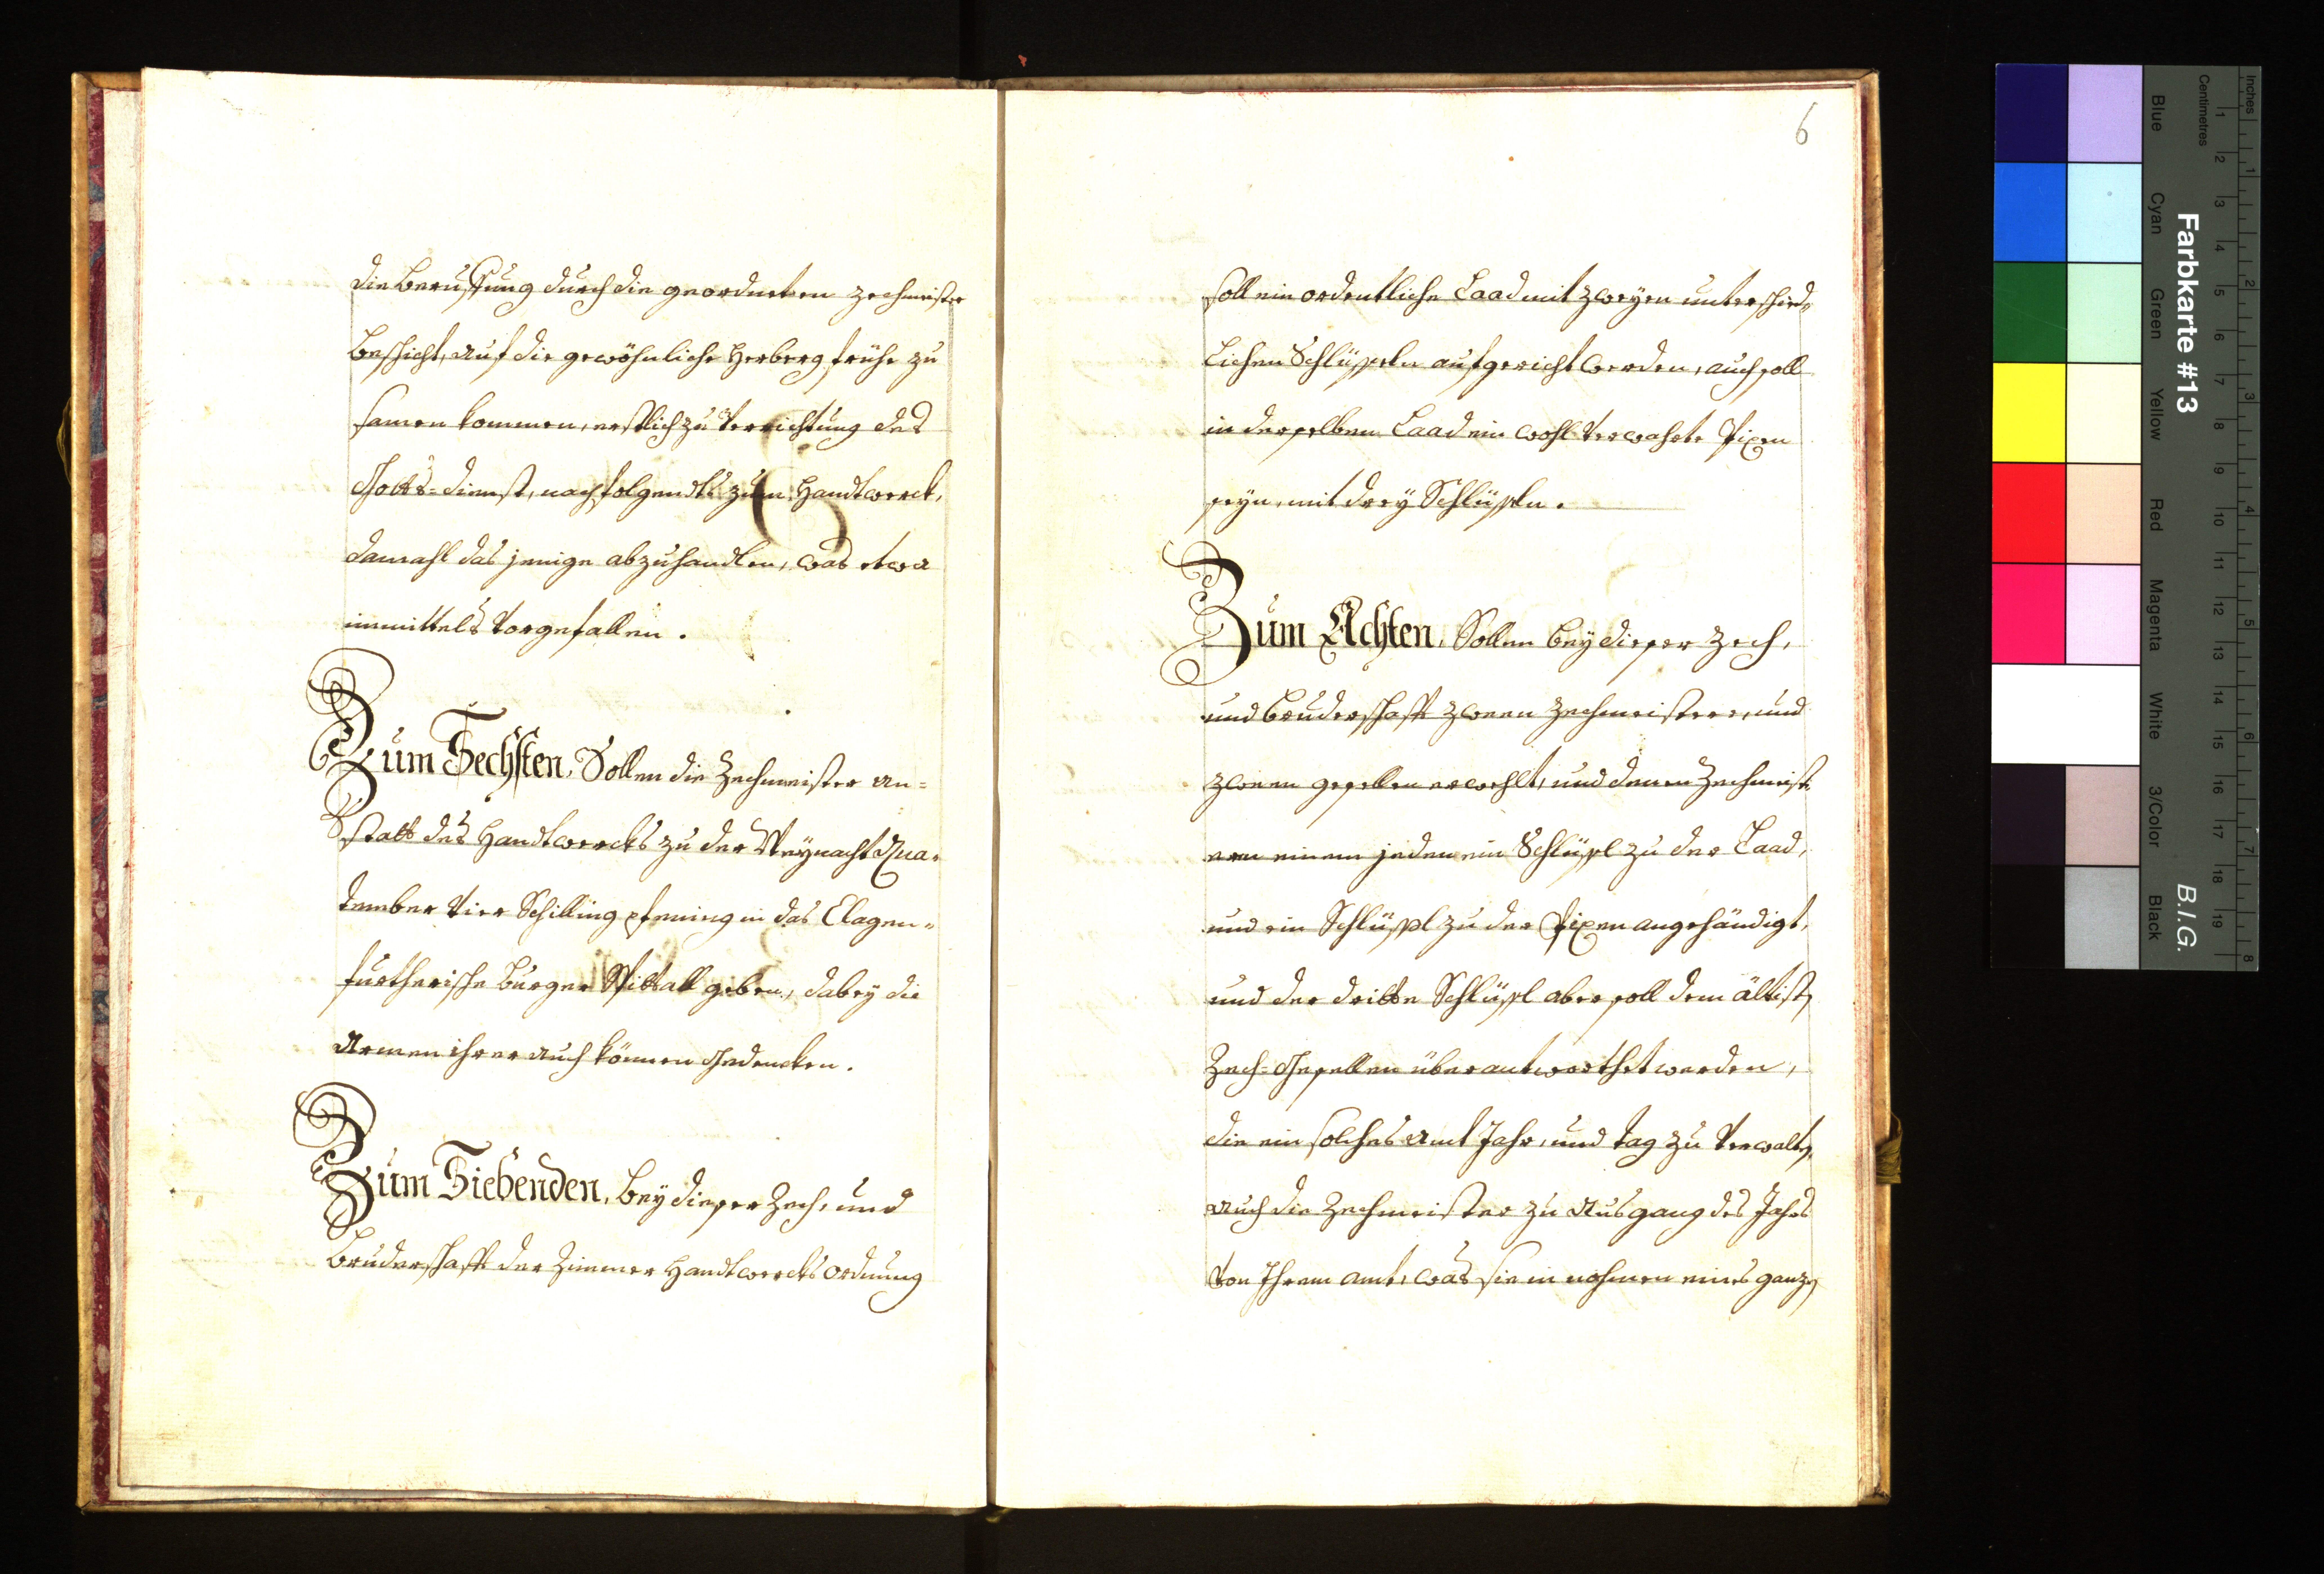 die beruffung durch die geordneten zechmeister
beschicht, auf die gewöhnliche Herberg frühe zu
samen kommen, erstlich zu Verrichtung des
Gotts=dienst, nachfolgendts zum Handtwerck,
damahl das jenige abzuhandlen, was etwa
inmittels Vorgefallen.
Zum Sechsten, Sollen die Zechmeister an=
statt des Handtwercks zu der Weynacht Qua=
tember Vier Schilling pfening in das Clagen=
furtherische Burger Spittall geben, dabey die
Armen ihrer auch können Gedencken.
Zum Siebenden, bey dieser Zech, und
Bruderschafft der Zimmer Handtwercks ordnung
6
soll ein ordentliche Laad mit zweyen unterschied=
lichen Schlüsseln aufgericht werden, auch soll
in derselben Laad ein wohl Verwahrte Pixen
seyn, mit drey Schlüssln.
Zum Achten, Sollen bey dieser zech,
und Bruderschafft zween Zechmeistere, und
zween gesellen erwehlt, und denen Zechmeist
ern einem jeden ein Schlüssl zu der Laad,
und ein Schlüssl zu der Pixen angehändigt,
und der dritte Schlüssl aber soll dem ältist
Zech=Gesellen überantworthet werden,
die ein solches Amt Jahr, und tag zu Verwalt
auch die Zechmeister zu Ausgang des Jahrs
Von Ihrem amt, was sie in nahmen eines ganz
Farbkarte #13
B.I.G.
Inches
Centimetres
Blue
Cyan
Green
Yellow
Red
Magenta
White
3/Color
Black
1 2 3 4 5 6 7 8 9 10 11 12 13 14 15 16 17 18 19
1 2 3 4 5 6 7 8